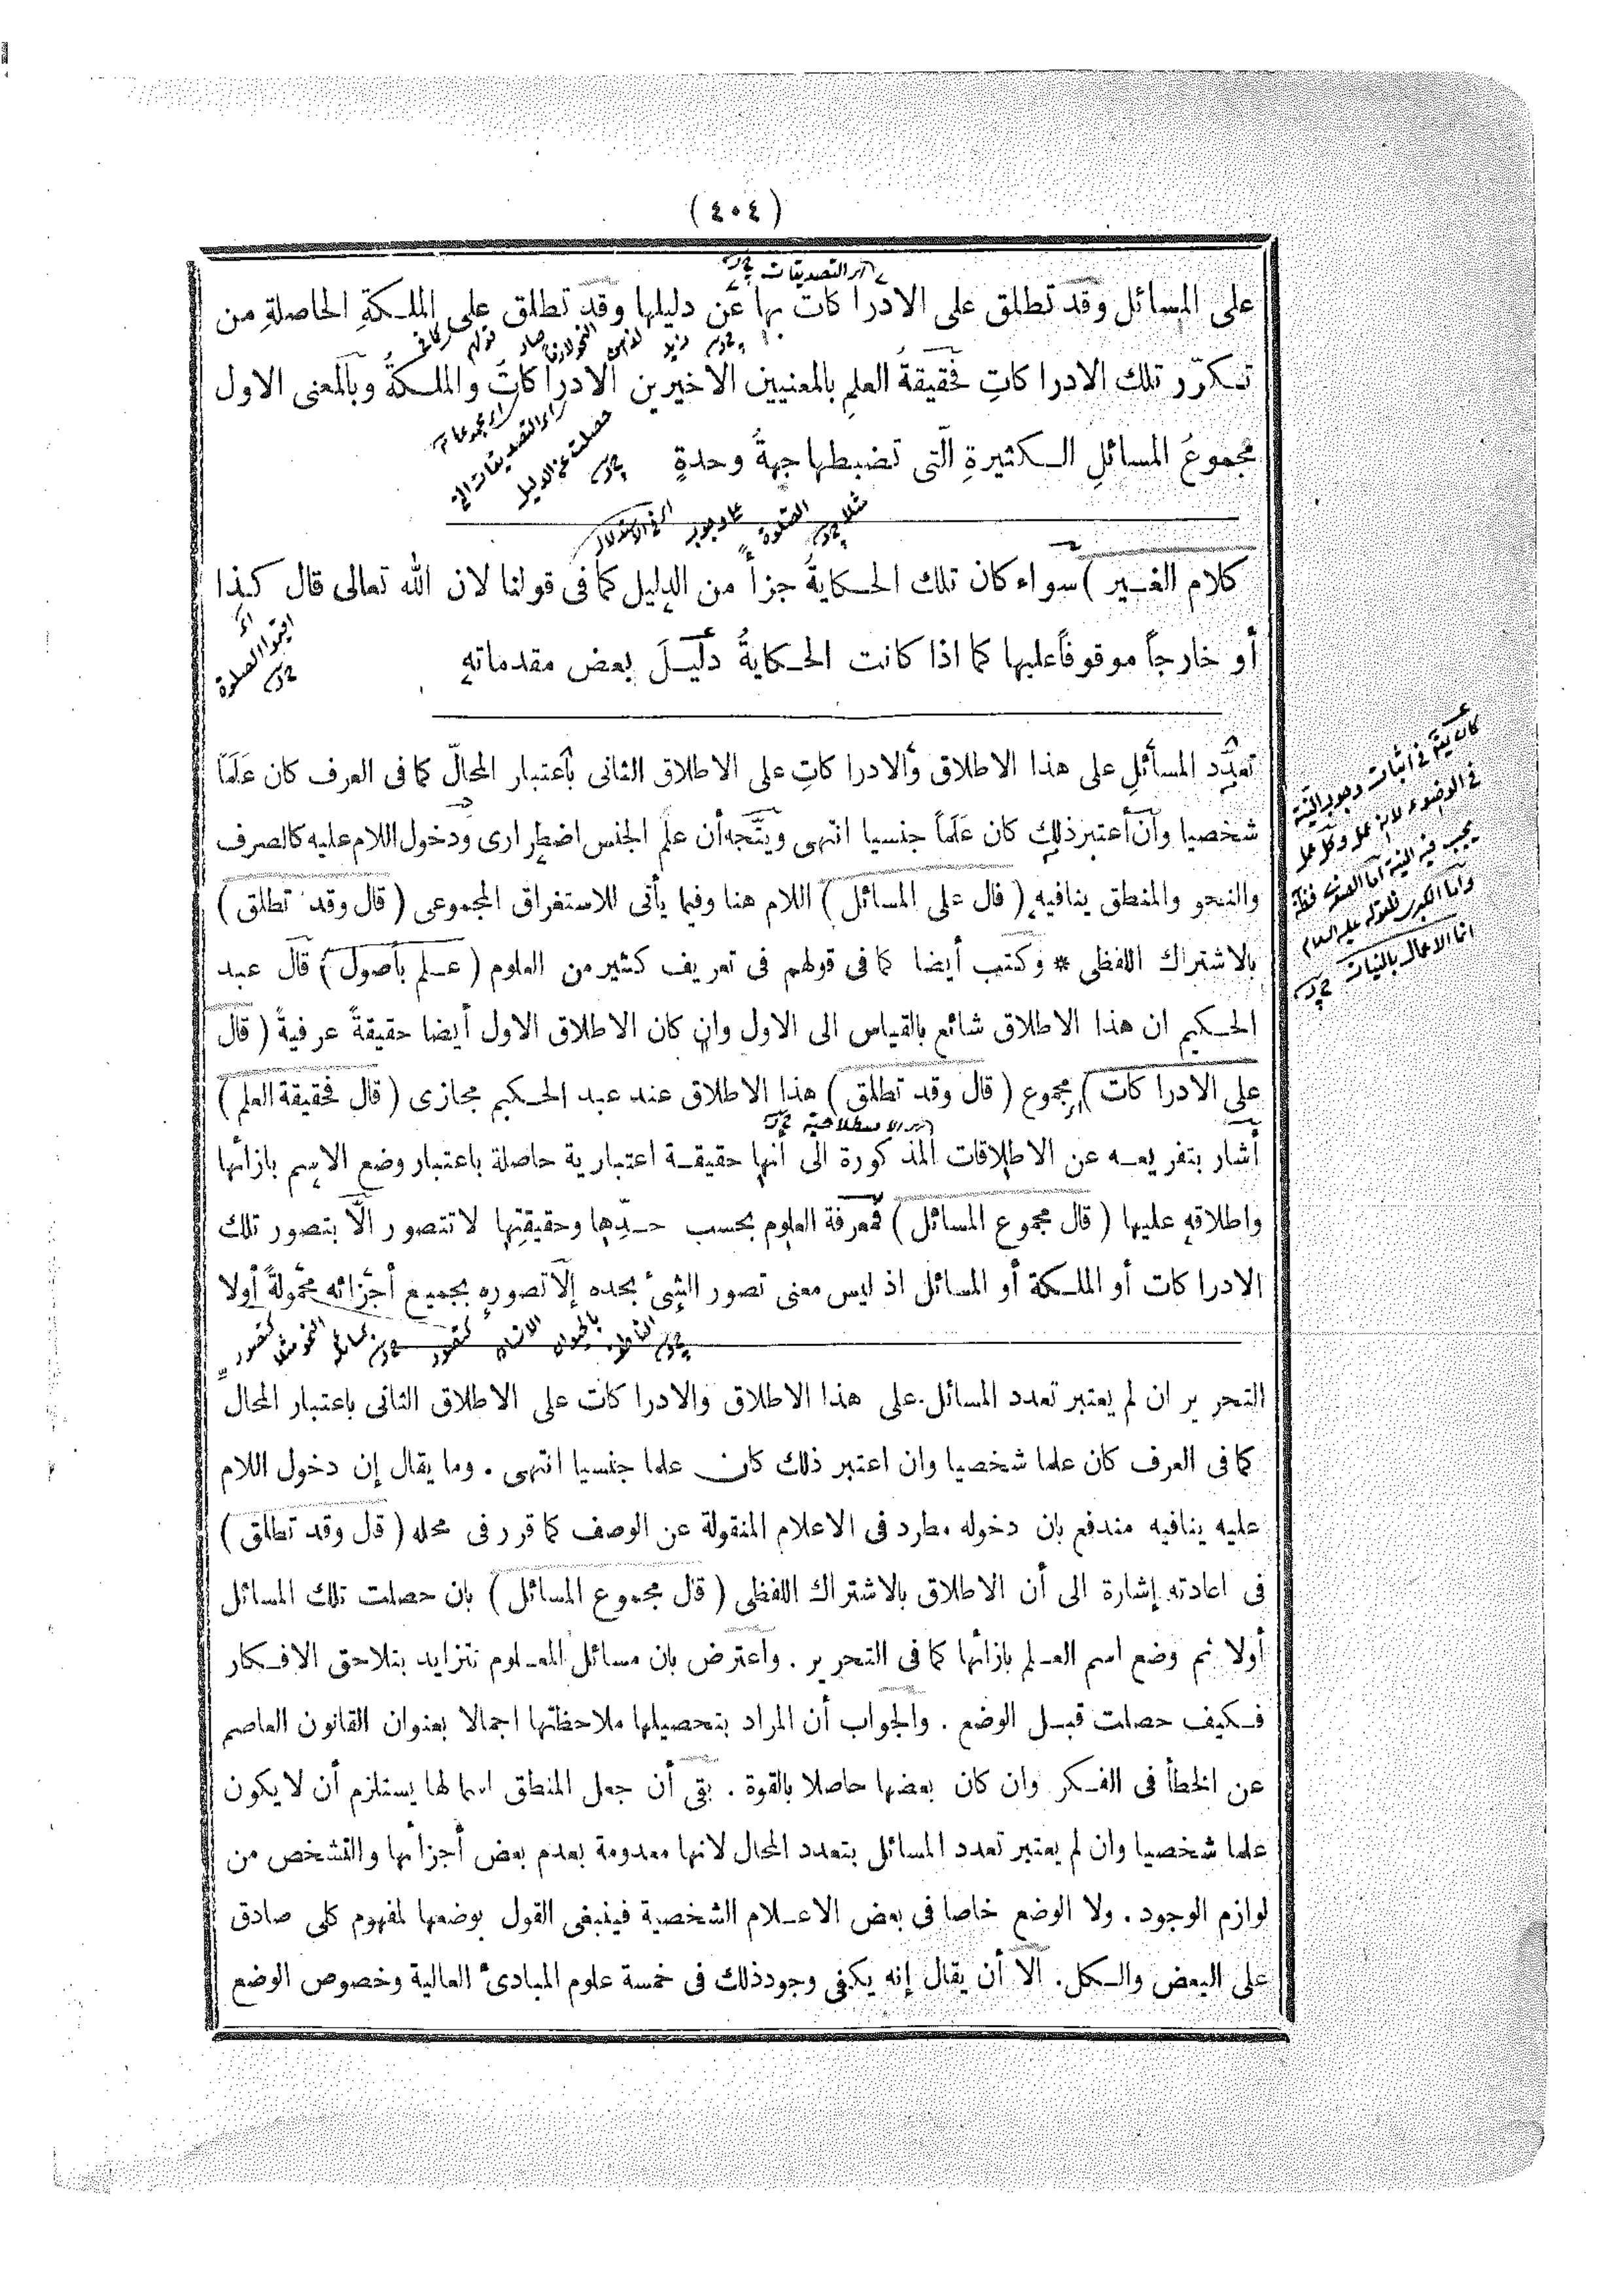 (٤٠٤)
على المسائل وقد تطلق على الادراكات بها عن دليلها وقد تطلق على الملكةِ الحاصلةِ من
تكرّر تلك الادراكاتِ فحقيقةُ العلمِ بالمعنيين الاخيرين الادراكاتُ والملكةُ وبالمعنى الاول
مجموعُ المسائلِ الكثيرةِ الّتى تضبطها جهةُ وحدةٍ
كلام الغير) سواء كان تلك الحكايةُ جزأً من الدليل كما فى قولنا لان الله تعالى قال كذا
أو خارجاً موقوفاً عليها كما اذا كانت الحكايةُ دليلَ بعض مقدماته
تعدّد المسائلِ على هذا الاطلاق والادراكاتِ على الاطلاق الثانى بأعتبار المحالّ كما فى العرف كان عَلَماً
شخصيا وان أعتبر ذلك كان عَلَماً جنسيا انتهى ويتّجه أن علم الجنس اضطرارى ودخول اللام عليه كالصرف
والنحو والمنطق ينافيه (قال على المسائل) اللام هنا وفيما يأتى للاستغراق المجموعى (قال وقد تطلق)
بالاشتراك اللفظى * وكتب أيضا كما فى قولهم فى تعريف كثير من العلوم (علم بأصول) قال عبد
الحكيم ان هذا الاطلاق شائع بالقياس الى الاول وان كان الاطلاق الاول أيضا حقيقةً عرفيةً (قال
على الادراكات) مجموع (قال وقد تطلق) هذا الاطلاق عند عبد الحكيم مجازى (قال فحقيقة العلم)
أشار بتفريعه عن الاطلاقات المذكورة الى أنها حقيقة اعتبارية حاصلة باعتبار وضع الاسم بازائها
واطلاقه عليها (قال مجموع المسائل) فمعرفة العلوم بحسب حدّها وحقيقتها لا تتصور الّا بتصور تلك
الادراكات أو الملكة أو المسائل اذ ليس معنى تصور الشئ بحده إلّا تصوره بجميع أجزائه محمولةً أولا
التحرير ان لم يعتبر تعدد المسائل على هذا الاطلاق والادراكات على الاطلاق الثانى باعتبار المحال
كما فى العرف كان علما شخصيا وان اعتبر ذلك كان علما جنسيا انتهى . وما يقال إن دخول اللام
عليه ينافيه مندفع بان دخوله مطرد فى الاعلام المنقولة عن الوصف كما قرر فى محله (قال وقد تطلق)
فى اعادته إشارة الى أن الاطلاق بالاشتراك اللفظى (قال مجموع المسائل) بان حصلت تلك المسائل
أولا ثم وضع اسم العلم بازائها كما فى التحرير . واعترض بان مسائل العلوم تتزايد بتلاحق الافكار
فكيف حصلت قبل الوضع . والجواب أن المراد بتحصيلها ملاحظتها اجمالا بعنوان القانون العاصم
عن الخطأ فى الفكر وان كان بعضها حاصلا بالقوة . بقى أن جعل المنطق اسما لها يستلزم أن لا يكون
علما شخصيا وان لم يعتبر تعدد المسائل بتعدد المحال لانها معدومة بعدم بعض أجزائها والتشخص من
لوازم الوجود . ولا الوضع خاصا فى بعض الاعلام الشخصية فينبغى القول بوضعها لمفهوم كلى صادق
على البعض والكل . الّا أن يقال إنه يكفى وجود ذلك فى خمسة علوم المبادئ العالية وخصوص الوضع